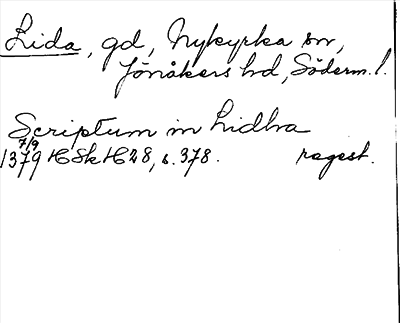 Lida, gd, Nykyrka sn,
Jönåkers hd, Söderm. l.
Scriptum in Lidhra
7/9
1379 HSkH 28, s. 378. regest.